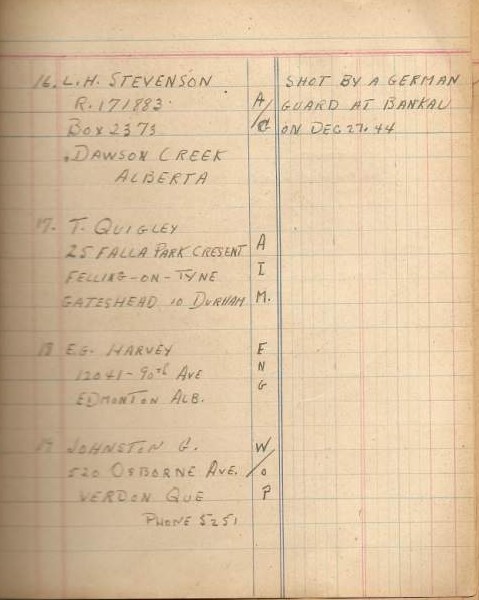 16. L.H. STEVENSON SHOT BY A GERMAN
R. 171883. A/ GUARD AT BANKAU
BOX 2373 /G ON DEC 27. 44
DAWSON CREEK
ALBERTA
17. T. QUIGLEY
25 FALLA PARK CRESENT A
FELLING-ON-TYNE I
GATESHEAD 10 DURHAM M.
18 E.G. HARVEY E
12041-90th AVE N
EDMONTON ALB. G
19 JOHNSTIN G. W
520 OSBORNE AVE. / O
VERDON QUE P
PHONE 5251